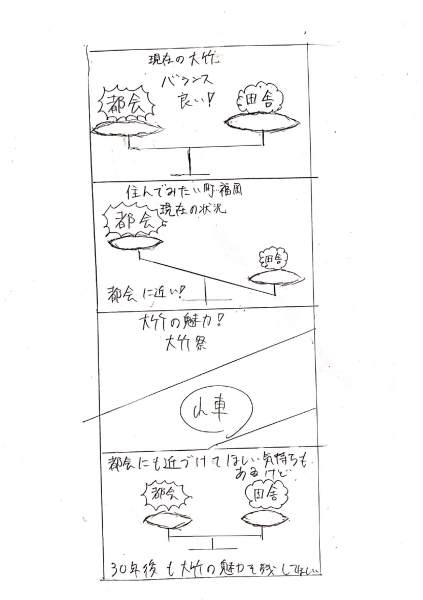 現在の大竹
バランス
良い!
都会
田舎
住んでみたい町・福岡
現在の状況
都会
田舎
都会に近い!
大竹の魅力!
大竹祭
山車
都会にも近づけてほしい気持ちも
あるけど
都会
田舎
30年後も大竹の魅力を残してほしい